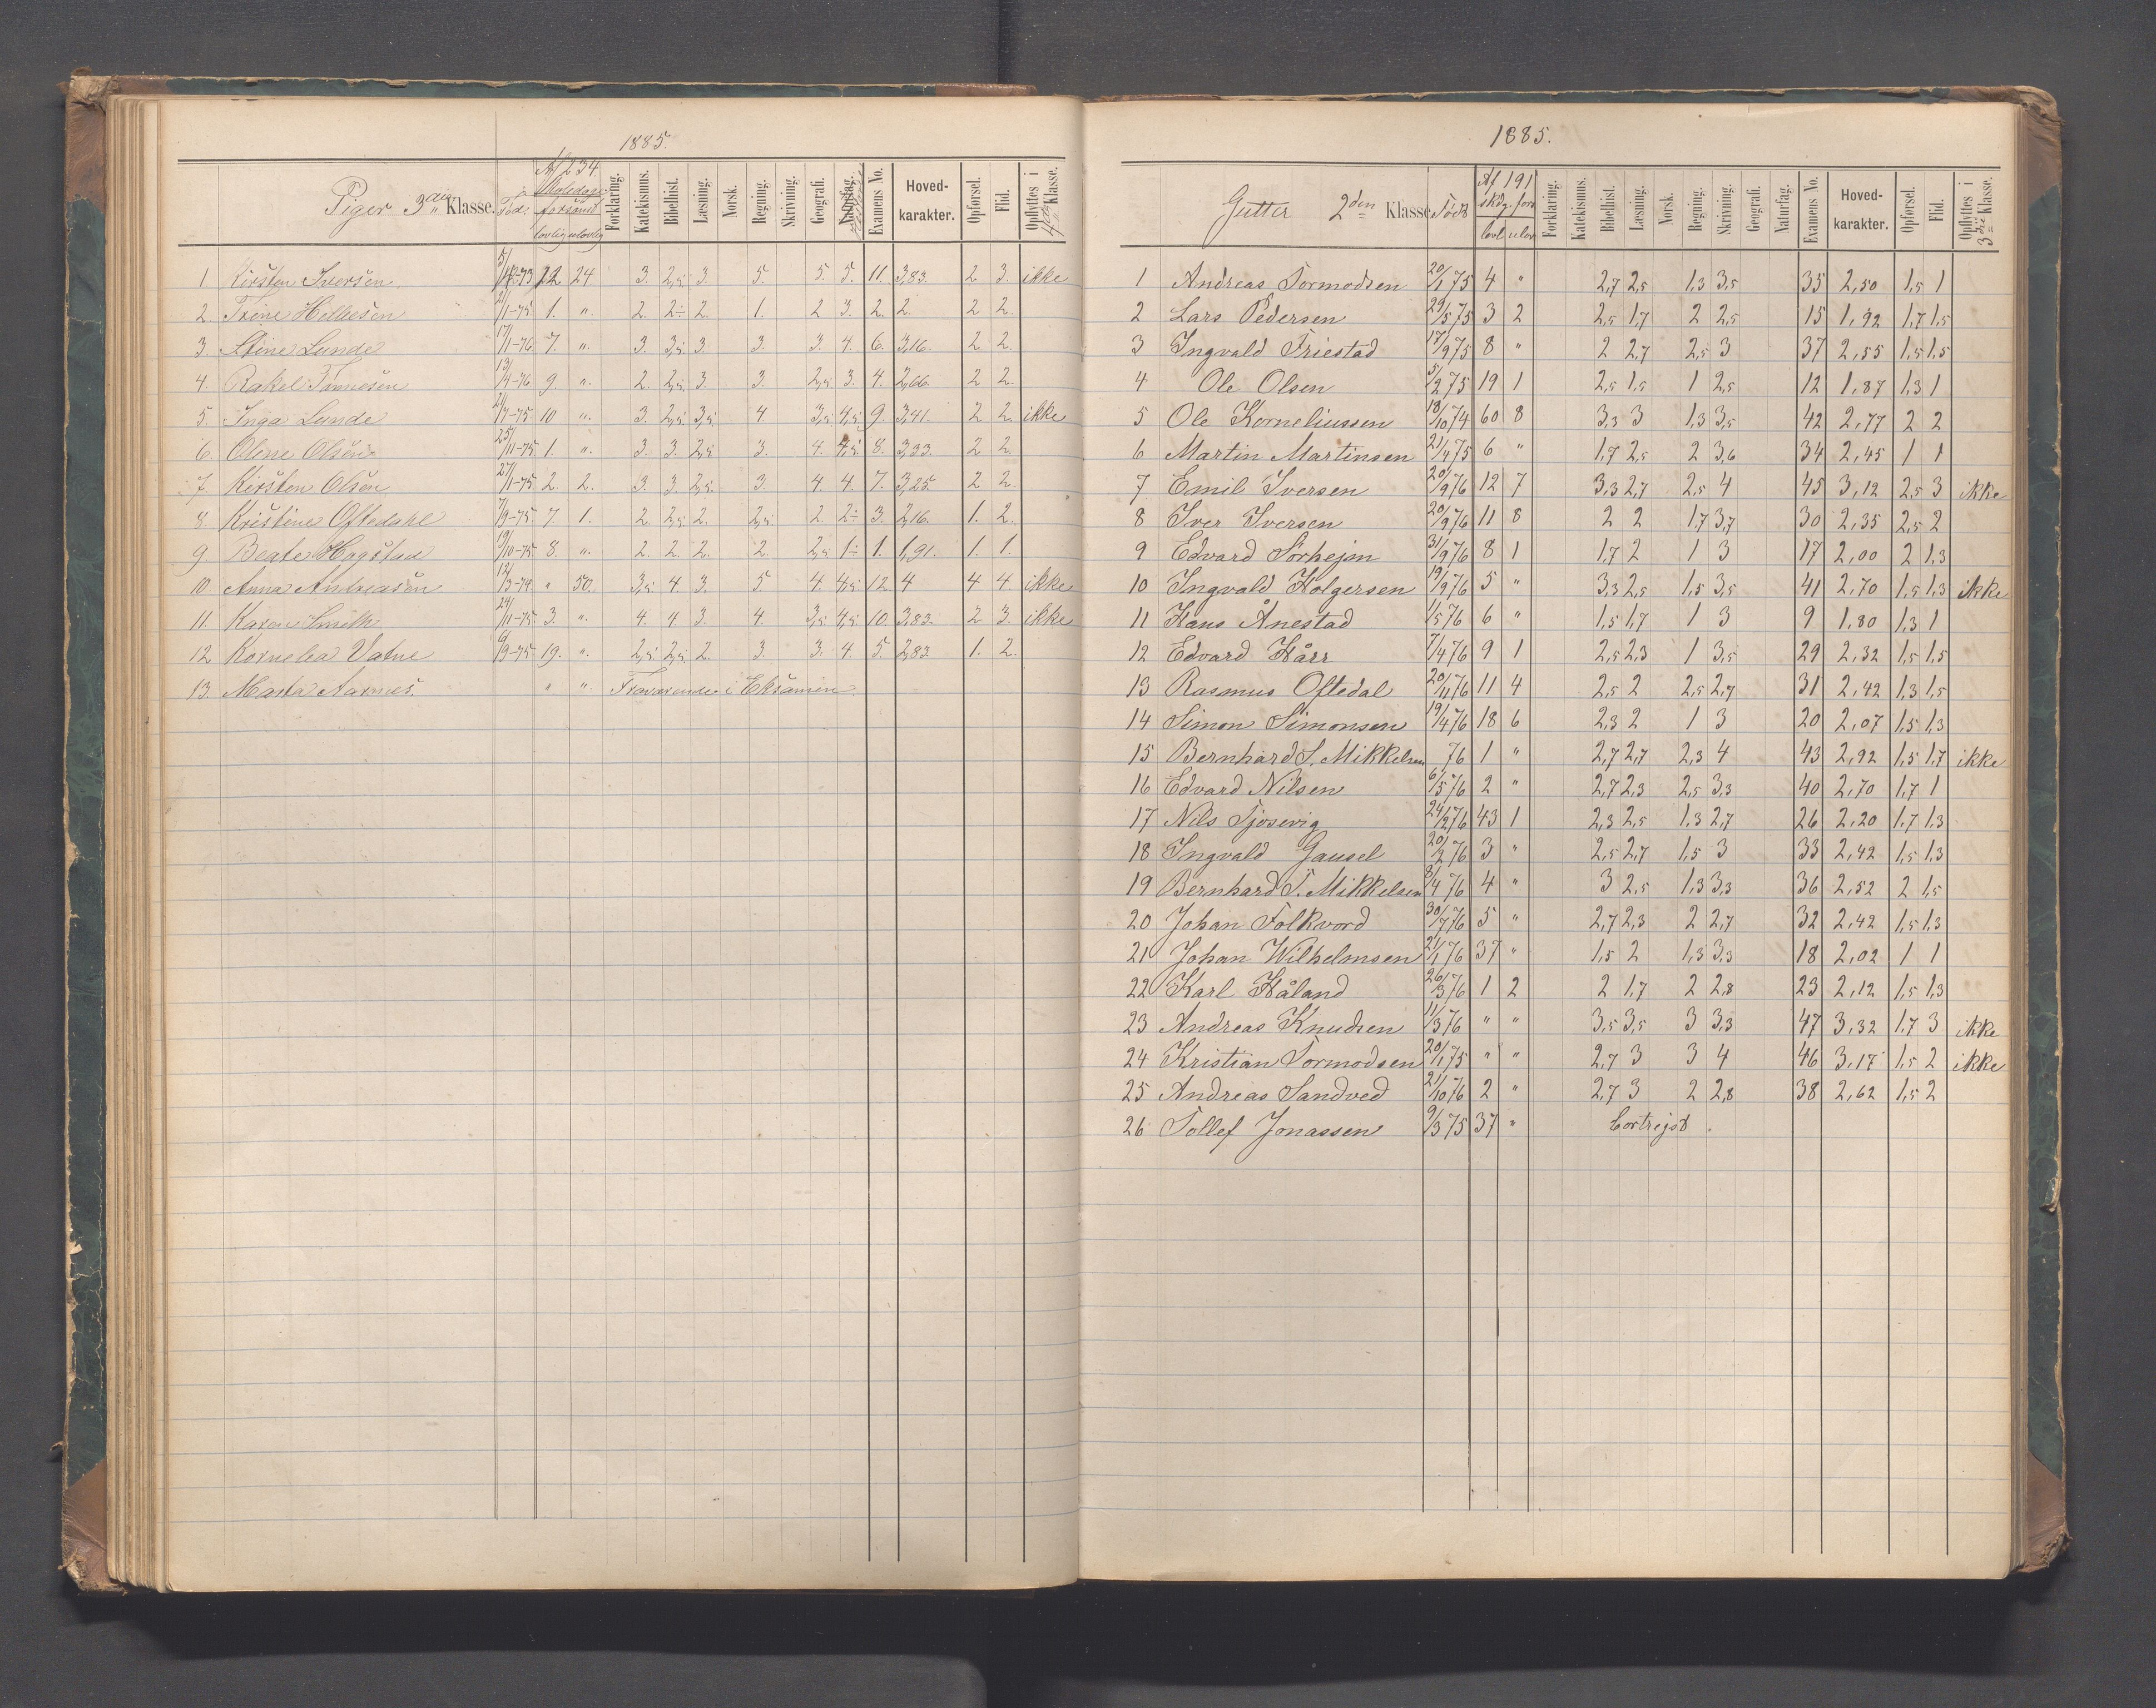 1885.
Piger 3die Klasse. Født Af 234 Skoledage forsømt lovlig ulovlig Forklaring. Katekismus. Bibelhist. Læsning. Norsk. Regning. Skrivning. Geografi. Naturfag. Examens No. Hoved-karakter. Opførsel. Flid. Opflyttes i 4de Klasse.
1. Kirsten Iversen 12 24 3. 2,5 3. 5. 5. 5. 11. 3,83. 2 3. ikke
2. Trine Hellesen 2/1-75. 1. " 2. 2÷ 2. 1. 2 3. 2. 2. 2 2.
3. Stine Lunde 17/1-76 7. " 3. 3,5 3. 3. 3. 4. 6. 3,16. 2 2.
4. Rakel Tønnesen 13/4-76 9 " 2. 2,5 3. 3. 2,5 3. 4. 2,66. 2 2.
5. Inga Lunde 21/7-75 10 " 3. 2,5 3,5 4 3,5 4,5 9. 3,41. 2 2. ikke
6. Olene Olsen 25/11-75. 1. " 3. 3. 2,5 3. 4. 4,5. 8. 3,33. 2 2.
7. Kirsten Olsen 27/1-75 2. 2. 3. 3. 2,5. 3. 4 4. 7. 3,25 2 2.
8. Kristine Oftedahl 7/9-75. 7. 1. 2. 2,5 2. 2,5. 2. 2÷ 3. 2,16. 1. 2.
9 Beate Hogstad 19/10-75. 8. " 2. 2. 2. 2. 2,5 1÷ 1. 1,91. 1. 1.
10. Anna Andreasen 12/3-74. " 50. 3,5. 4. 3. 5. 4. 4,5 12. 4 4 4. ikke
11. Karen Smith 24/11-75. 3. " 4. 4. 3. 4. 3,5 4,5. 10. 3,83. 2 3. ikke
12. Kornelia Vatne 6/9-75. 19. " 2,5. 2,5. 2. 3. 3. 4. 5. 2,83. 1. 2.
13. Marta Aarnes. " " Fraværende i Eksamen.
1885.
Gutter 2den Klasse Født Af 191 skdg. fors lovl ulov Forklaring. Katekismus. Bibelhist. Læsning. Norsk. Regning. Skrivning. Geografi. Naturfag. Examens No. Hoved-karakter. Opførsel. Flid. Opflyttes i 3die Klasse.
1 Andreas Tormodsen 20/1 75 4 " 2,7 2,5 1,3 3,5 35 2,50 1,5 1
2 Lars Pedersen 29/5 75 3 2 2,5 1,7 2 2,5 15 1,92 1,7 1,5
3 Ingvald Friestad 17/9 75 8 " 2 2,7 2,5 3 37 2,55 1,5 1,5
4 Ole Olsen 5/2 75 19 1 2,5 1,5 1 2,5 12 1,87 1,3 1
5 Ole Korneliussen 18/10 74 60 8 3,3 3 1,3 3,5 42 2,77 2 2
6 Martin Martinsen 21/4 75 6 " 1,7 2,5 2 3,6 34 2,45 1 1
7 Emil Iversen 20/9 76 12 7 3,3 2,7 2,5 4 45 3,12 2,5 3 ikke
8 Iver Iversen 20/9 76 11 8 2 2 1,7 3,7 30 2,35 2,5 2
9 Edvard Sørhejm 31/9 76 8 1 1,7 2 1 3 17 2,00 2 1,3
10 Ingvald Holgersen 19/9 76 5 " 3,3 2,5 1,5 3,5 41 2,70 1,5 1,3 ikke
11 Hans Ånestad 1/5 76 6 " 1,5 1,7 1 3 9 1,80 1,3 1
12 Edvard Hårr 7/4 76 9 1 2,5 2,3 1 3,5 29 2,32 1,5 1,5
13 Rasmus Oftedal 20/11 76 11 4 2,5 2 2,5 2,7 31 2,42 1,3 1,5
14 Simon Simonsen 19/4 76 18 6 2,3 2 1 3 20 2,07 1,5 1,3
15 Bernhard S. Mikkelsen 76 1 " 2,7 2,7 2,3 4 43 2,92 1,5 1,7 ikke
16 Edvard Nilsen 6/5 76 2 " 2,7 2,3 2,5 3,3 40 2,70 1,7 1
17 Nils Tjosevig 24/2 76 43 1 2,3 2,5 1,3 2,7 26 2,20 1,7 1,3
18 Ingvald Gausel 20/2 76 3 " 2,5 2,7 1,5 3 33 2,42 1,5 1,3
19 Bernhard T. Mikkelsen 8/4 76 4 " 3 2,5 1,3 3,3 36 2,52 2 1,5
20 Johan Folkvord 30/7 76 5 " 2,7 2,3 2 2,7 32 2,42 1,5 1,3
21 Johan Wilhelmsen 21/1 76 37 " 1,5 2 1,3 3,3 18 2,02 1 1
22 Karl Håland 26/3 76 1 2 2 1,7 2 2,8 23 2,12 1,5 1,3
23 Andreas Knudsen 11/3 76 " " 3,5 3,5 3 3,3 47 3,32 1,7 3 ikke
24 Kristian Tormodsen 20/1 75 " " 2,7 3 3 4 46 3,17 1,5 2 ikke
25 Andreas Sandved 21/10 76 2 " 2,7 3 2 2,8 38 2,62 1,5 2
26 Tollef Jonassen 9/3 75 37 " bortrejst.